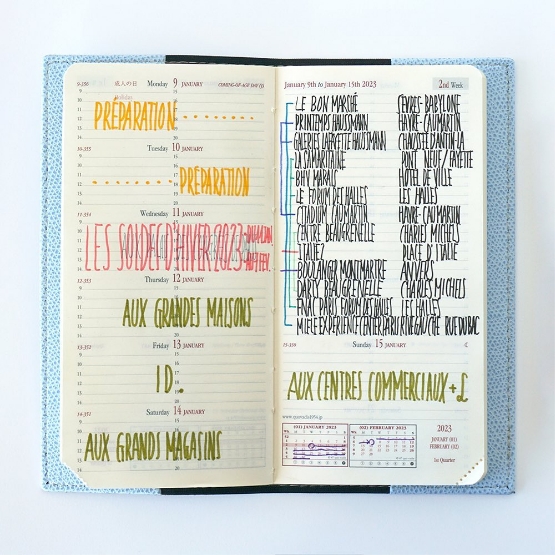 9-356 成人の日 Monday 9 JANUARY COMING-OF-AGE DAY(J)
PRÉPARATION
10-355 Tuesday 10 JANUARY
PRÉPARATION
11-354 Wednesday 11 JANUARY
LES SOLDES D'HIVER 2023
12-353 Thursday 12 JANUARY
AUX GRANDES MAISONS
13-352 Friday 13 JANUARY
ID.
14-351 Saturday 14 JANUARY
AUX GRANDS MAGASINS
January 9th to January 15th 2023 2nd Week
LE BON MARCHÉ SÈVRES-BABYLONE
PRINTEMPS HAUSSMANN HAVRE-CAUMARTIN
GALERIES LAFAYETTE HAUSSMANN CHAUSSÉE D'ANTIN-LA
LA SAMARITAINE PONT NEUF / FAYETTE
BHV MARAIS HÔTEL DE VILLE
LE FORUM DES HALLES LES HALLES
CITADIUM CAUMARTIN HAVRE-CAUMARTIN
CENTRE BEAUGRENELLE CHARLES MICHELS
ITALIE2 PLACE D'ITALIE
BOULANGER MONTMARTRE ANVERS
DARTY BEAUGRENELLE CHARLES MICHELS
FNAC PARIS FORUM DES HALLES LES HALLES
MIELE EXPERIENCE CENTER PARIS RIVE GAUCHE RUE DU BAC
15-350 Sunday 15 JANUARY
AUX CENTRES COMMERCIAUX +
(01) JANUARY 2023 (02) FEBRUARY 2023 2023
JANUARY (01)
FEBRUARY (02)
1st Quarter